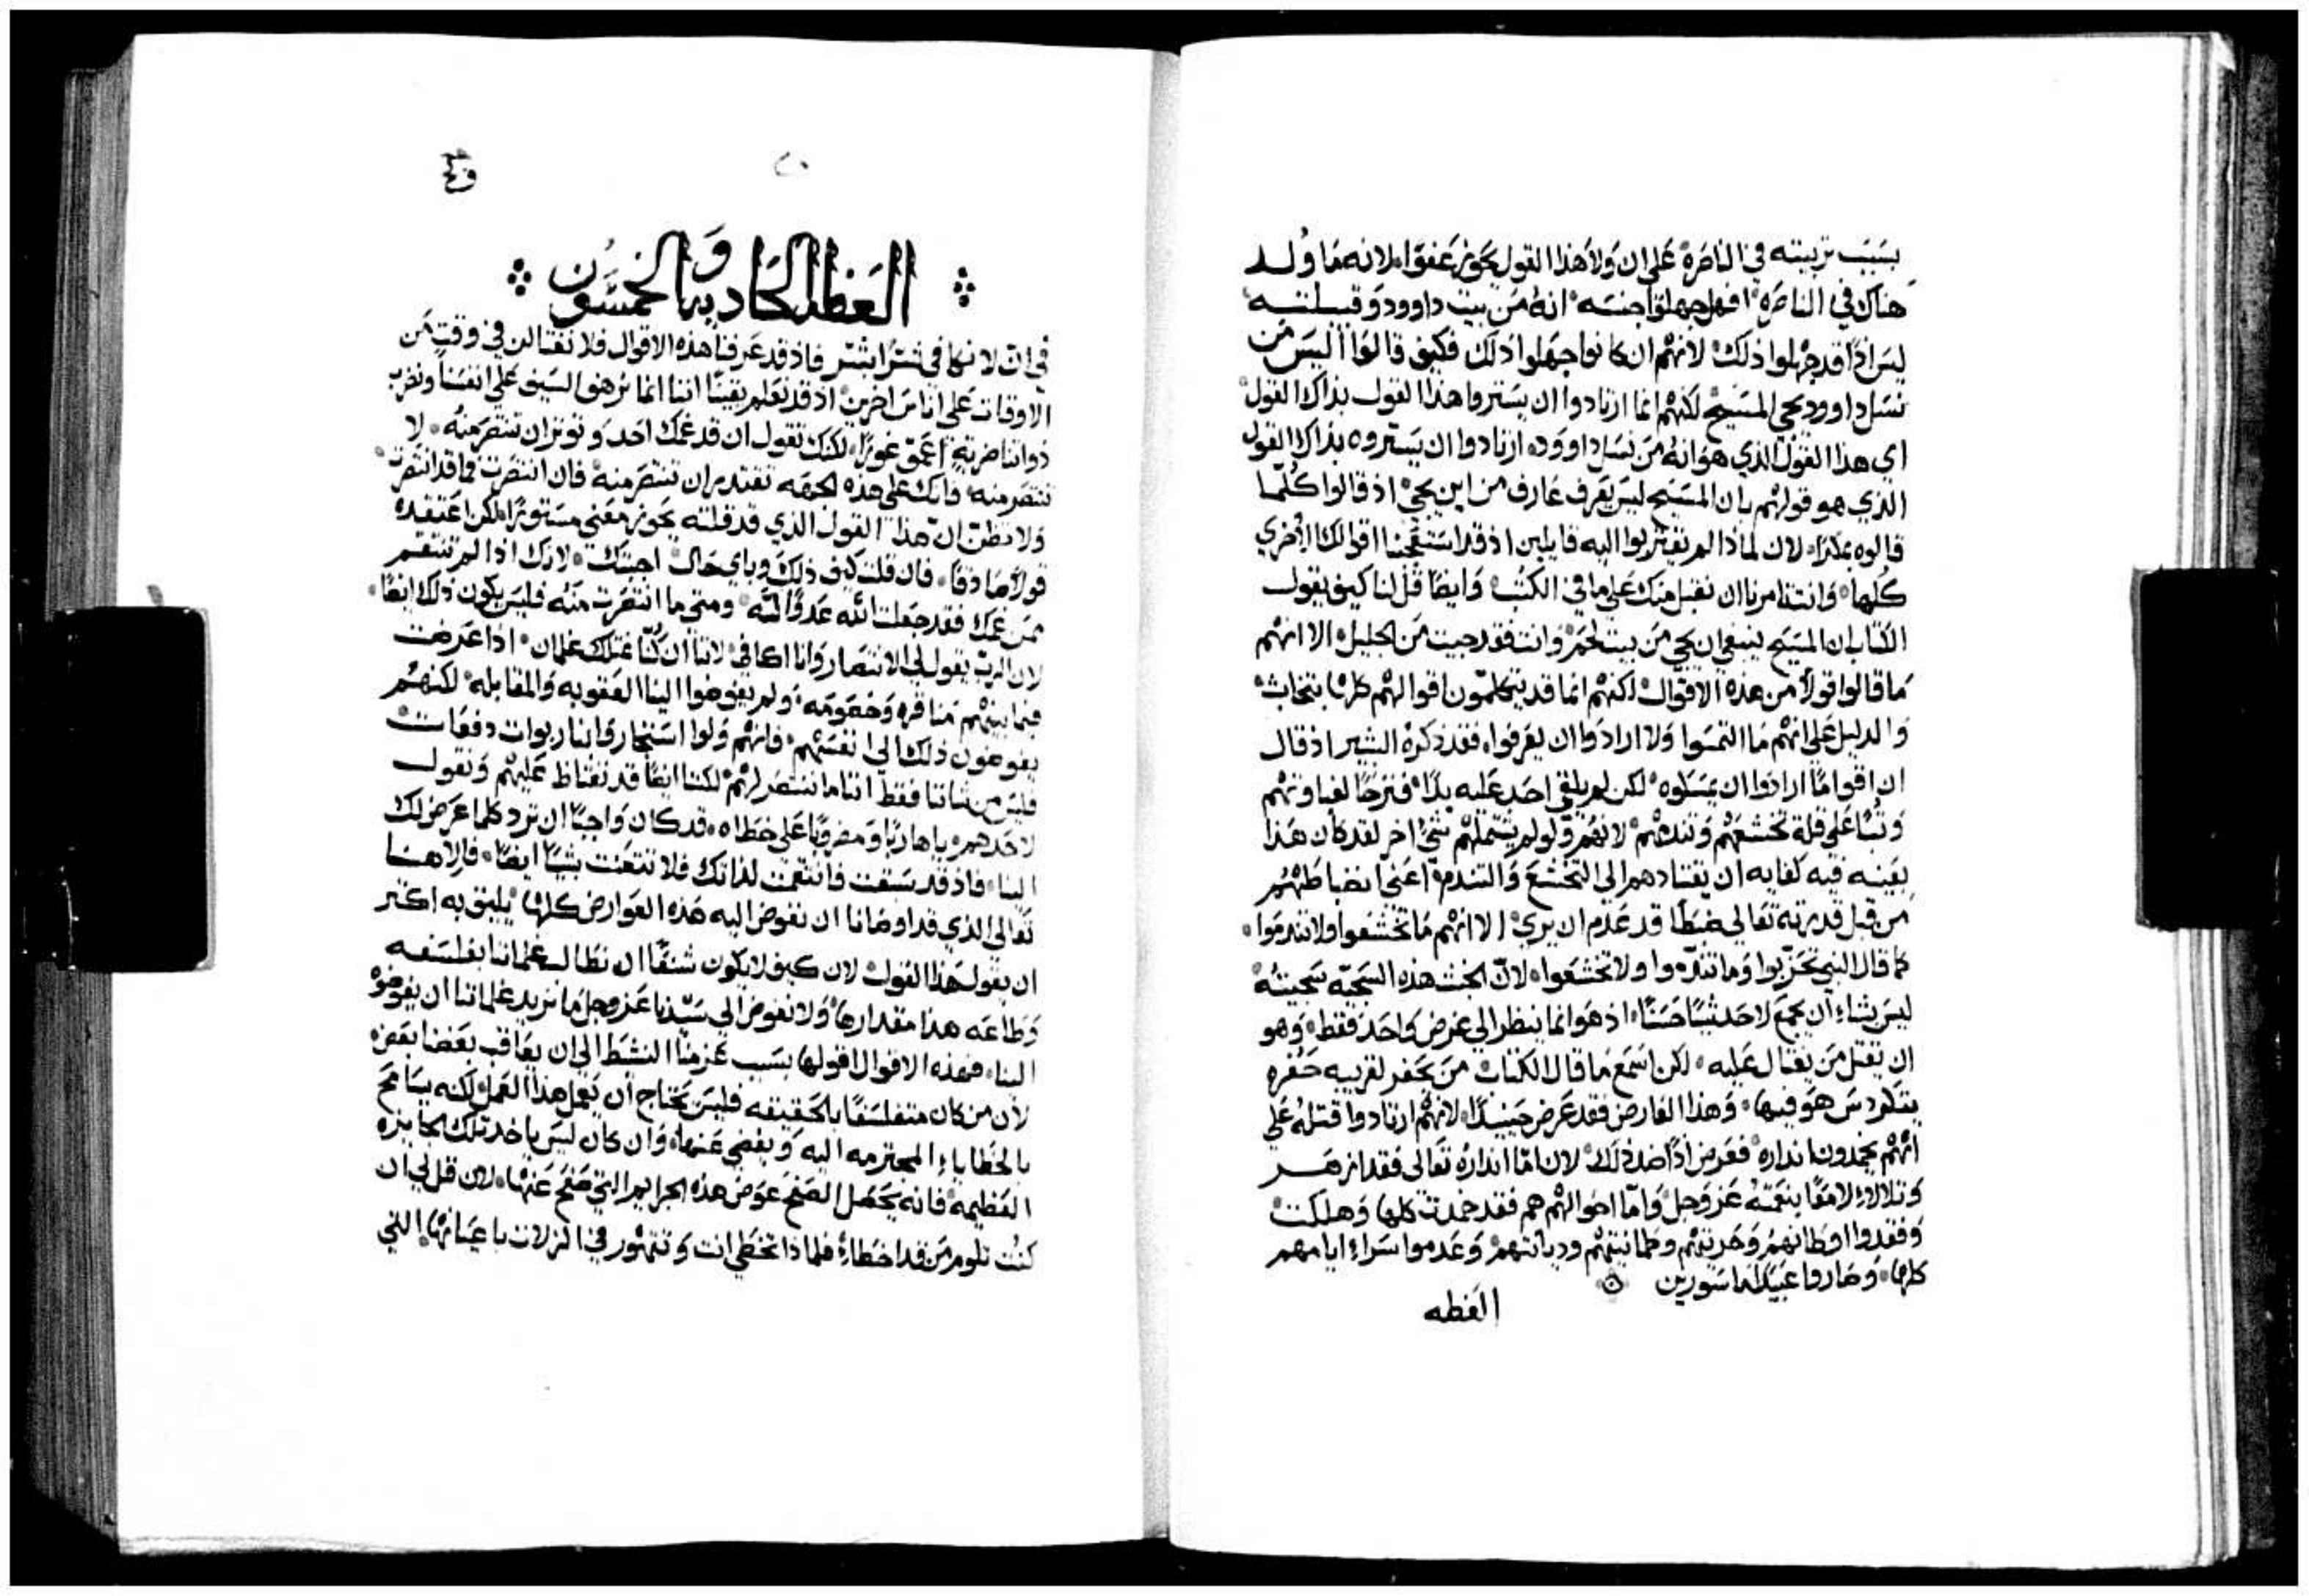 بسَبَب تربيته في الناصَره علي ان وَلا هَذا القول يحَوز عَفوًا لانه مَا وُلد
هناك في الناصَره افهل جهلوا جنسَه انهُ مَن بيت داوود وَقبيلته
ليسَ اذًا قد جهلوا ذلك لانهُم ان كانوا جهَلوا ذلك فكيف قالوَا اليسَ مَن
نسَل داوود يجي المسَيح لكنهُم انما ارتادوا ان يسَتروا هذا القول بذاك القول
اي هذا القول الذي هوَ انهُ مَن نسَل داووده ارتادوا ان يسَتروه بذاك القول
الذي هو قولهُم بان المسَيح ليسَ يعَرف عَارف من اين يجي اذ قالوا كُلما
قالوه بمكرٍ لان لماذا لم يقتربوا اليه قايلين اذ قد استَعجبنا اقوالك الاخري
كُلها وَانت تامرنا ان نقبل منك عَلي ما في الكتبُ وَايضًا قُل لنا كيف يقول
الكتاب ان المسَيح ينبغي ان يجي مَن بيت لحَم وَانت فقد جيت مَن الجليل الا انهُم
مَا قالوا قولًا من هذه الاقوال لكنهُم انما قد يتكلمَون اقوالهُم كلها بتخابث
وَالدليل عَلي انهُم مَا التمسَوا وَلا ارادَوا ان يعَرفوا فقد ذكرهُ البشير اذ قال
ان اقوامًا ارادَوا ان يمسَكوه لكن لم يلقي احَد عَليه يدًا فترحًا لغباوتهُم
وَتبًا عَلي قلة تخشعَهُم وَتندمهُم لانهُم وَلو لم يشتملهُم شيُ اخر لقد كان هَذا
بعَينه فيه كفايه ان يقتادهم الي التخشعَ وَالتندم اعَني انضباطهُم
مَن قبل قدرته تعَالي ضبطًا قد عَدم ان يري الا انهُم مَا تخشعَوا ولا تندمَوا
كما قال النبي تحَزبوا وَما تندموا ولا تخشعَوا لان الخبث هذه السَجيّه سَجيتهُ
ليسَ يشاء ان يجمَع لاحَد شيًا حَسَنًا اذ هوَ انما ينظر الي غرض وَاحَد فقط وَهو
ان يقتل مَن يغتال عَليه لكن اسَمع مَا قال الكتاب مَن يحَفر لقريبه حَفره
يتكردسَ هوَ فيها وَهذا العَارض فقد عَرض حَينيذًا لانهُم ارتادوا قتلهُ عَلي
انهُم يخمدون انداره فعَرض اذًا ضد ذلك لان امّا اندارهُ تعَالي فقد ازهَر
وَتلالا لامعًا بنعَمته عَز وَجل وَامّا احوَالهُم هم فقد خمدت كلها وَهلكت
وَفقدوا اوطانهُم وَحَريتهُم وطمانيتهُم وديانتهم وَعَدموا سَراء ايامهم
كلها وَصَاروا عَبيدًا ماسَورين
العَظه
العَظه الحَاديه وَالخمسُون
في ان لا نكافي شرًا بشر فاذ قد عَرفنا هذه الاقوال فلا نغتالن في وقتٍ مَن
الاوقات عَلي اناسَ اخرين اذ قد نعَلم يقينًا اننا انما نرهف السَيف عَلي انفسَنا ونضرب
ذواتنا ضربةٍ اعمَق غورًا لكنك تقول ان قد غمك احَد وَتوثر ان تنتصَر منهُ لا
تنتصَر منه فانك عَلي هذه الجهَه تقتدر ان تنتصَر منهُ فان انتصَرت فما قد انتصَرت
وَلا تظنّ انّ هذا القول الذي قد قلته يحَوز مَعَني مسَتورًا لكن اعَتقده
قولًا صَادقًا فان قلت كيف ذلك وباي حَال اجبتك لانك اذا لم تنتقم
ممَن غمك فقد جعَلت الله عَدوًا لهَ ومتي ما انتصَرت منهُ فليسَ يكون ذلك ايضًا
لان الربّ يقول لي الانتصَار وَانا اكافي لاننا ان كُنّا نمتلك غلمان اذا عَرضت
فيما بينهُم مَنافره وَخصَومَه وَلم يفوضوا الينا العَقوبه وَالمقابله لكنهُم
يفوضون ذلك الي انفسَهُم فانهُم وَلوا اسَتجاروَا بنا ربوات دفعَات
فليسَ من شاننا فقط اننا ما ننتصَر لهُم لكننا ايضًا قد نغتاظ عَليهُم وَنقول
لاحَدهم يا هاربًا وَمضروبًا عَلي خطاه قد كان وَاجبًا ان ترد كلما عَرض لك
الينا فاذ قد سَبقت فانتقمت لذاتك فلا تتعَنت بشيًا ايضًا فالاهنا
تعَالي الذي قد اوصَانا ان نفوض اليه هَذه العَوارض كلها يليق به اكثر
ان يقول هَذا القول لان كيف لا يكون شنعًا ان نطالب غلماننا بفلسَفه
وَطاعَه هذا مقدارها وَلا نفوض الي سَيّدنا عَز وَجل مَا نريد غلماننا ان يفوضوهُ
الينا فهَذه الاقوال اقولها بسَبب عَزمنا النشط الي ان يعَاقب بعَضنا بعَض
لان من كان متفلسَفًا بالحَقيقه فليسَ يحَتاج ان يعَمل هذا العَمل لكنه يسَامح
بالخَطايا المجترمه اليه وَيغضي عَنها وَان كان ليسَ ياخد تلك الجايزه
العَظيمه فانه يحَصَل الصَفح عوَض هذه الجرايم التي صَفح عَنها لان قل لي ان
كنُت تلوم مَن قد اخطا فلماذا تخطي انت وَتتهور في الزلات باعيَانها التي